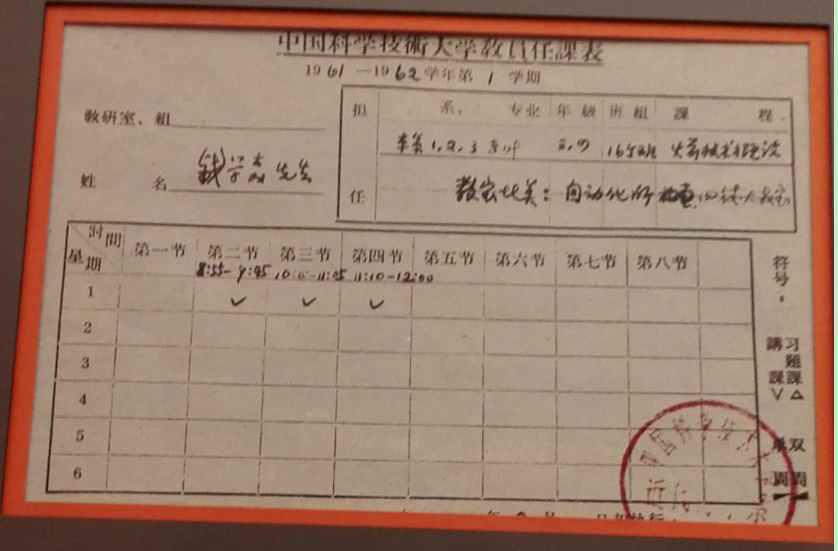 中国科学技術大学教員任課表
1961—1962学年第1学期
教研室、組
姓名 钱学森先生
担任
系、专业 年級 班組 課程
1,2,3 16个班 火箭技术概论
教室北美: 自动化所
时間
星期
第一节 第二节 第三节 第四节 第五节 第六节 第七节 第八节
8:55-9:45 11:10-12:00
1 ✓ ✓ ✓
2
3
4
5
6
符号:
講課 ∨
习題課 △
单周
双周